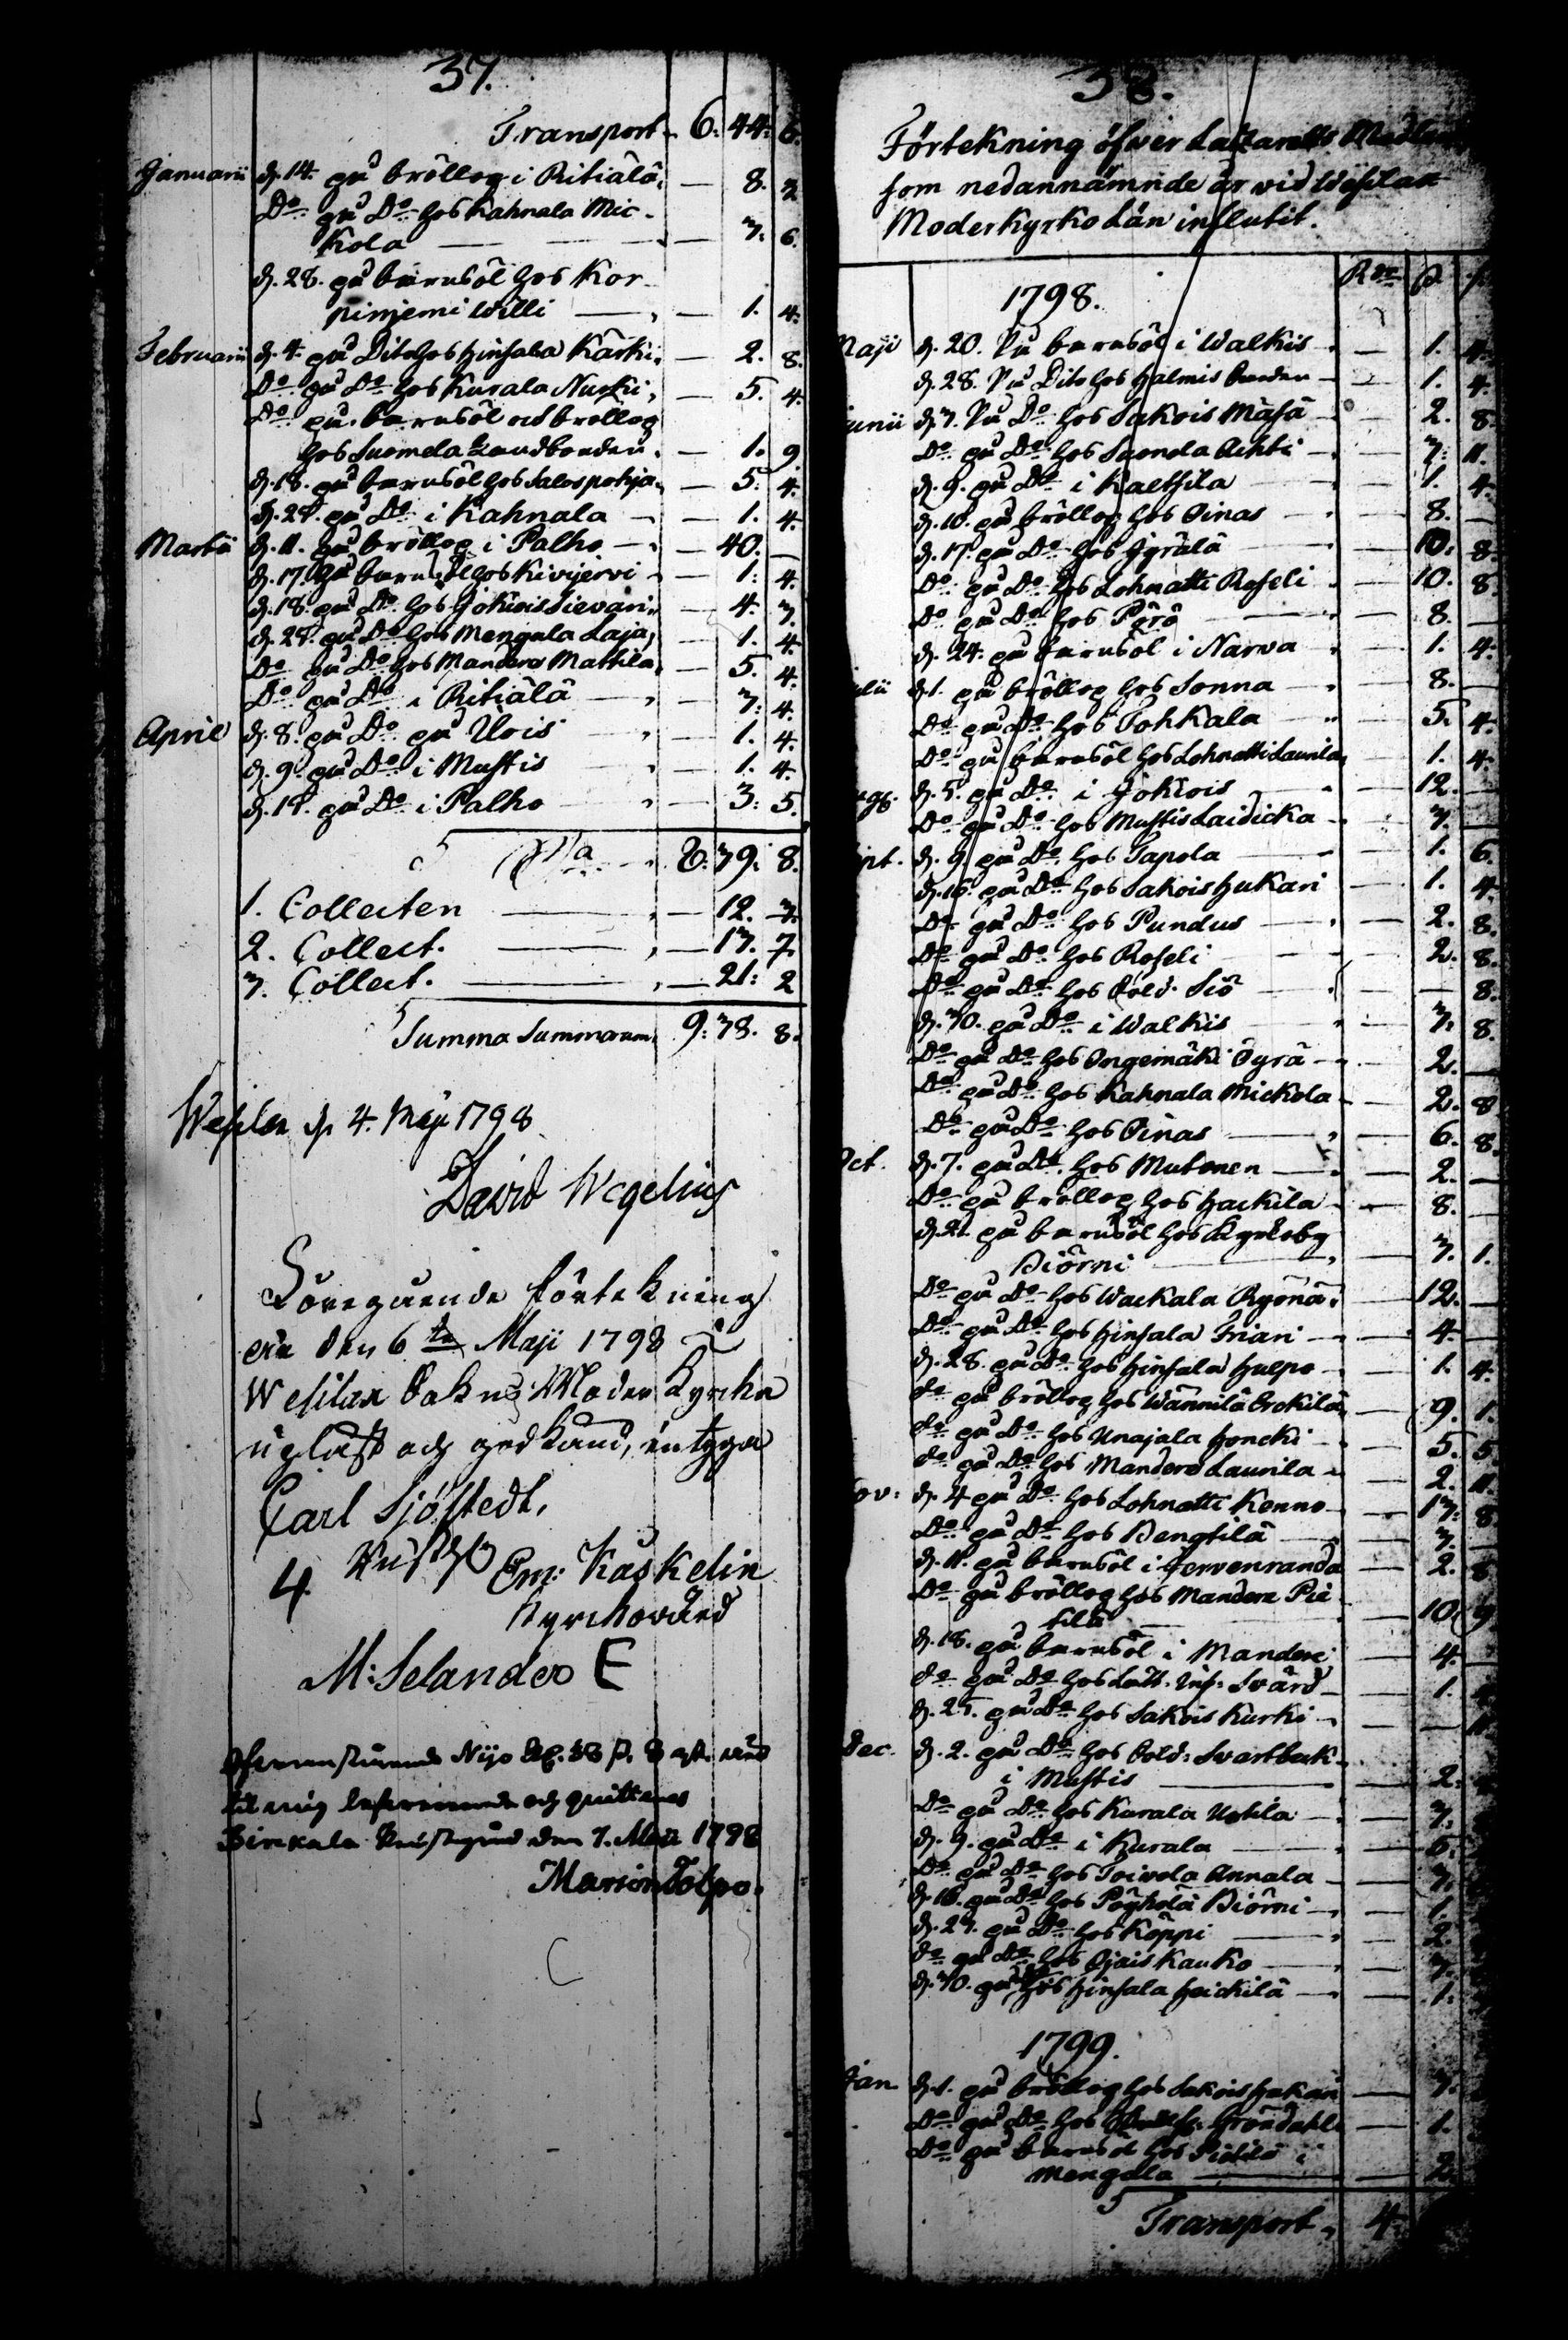 37.
Transport 6. 44. 6.
Januarii d. 14. på bröllop i Ritiälä, — 8. 3
Do på Do hos Kahnala Mic-
kola — — 3. 6.
d. 28. på barnsöl hos Kor
pinjemi Willi — 1. 4.
Februarii d. 4. på Dito hos Hinsala Kärki, — 2. 8.
Do på Do hos Kurala Nuoli, — 5. 4.
Do på barnsöl och bröllop
hos Suomela Landbonden. — 1. 9
d. 18. på barnsöl hos Salospohja — 5. 4.
d. 25. på Do i Kahnala — 1. 4.
Martii d. 11. på bröllop i Palho — 40. —
d. 17. på barnsöl hos Kivijervi — 1. 4.
d. 18. på Do hos Jokiois Sievari — 4. 3.
d. 25. på Do hos Mengala Laja, — 1. 4.
Do på Do hos Mandere Mattila, — 5. 4.
Do på Do i Ritiälä — 3. 4.
April d. 8. på Do på Uois — 1. 4.
d. 9. på Do i Mustis — 1. 4.
d. 15. på Do i Palho — 3. 5.
S:a 8. 39. 8.
1. Collecten — 12. 3.
2. Collect. — 13. 7.
3. Collect. — 21. 2
Summa Summarum, 9. 38. 8.
Wesilax d. 4. Maji 1798
David Wegelius
Föregående förtekning
är den 6te Maji 1798 i
Wesilax Sokns Moder Kyrcka
upläst och godkänd, intyga
Carl Sjöstedt.
4. Em: Kaskelin
Kyrckovärd
M: Selander E
til mig levererade och quitteras
Birkala Prästgård den 7. Maii 1798
Marten Tolpo.
38.
Förtekning öfwer Lazaretts Medlen
som nedannämnde år wid Wesilax
Moderkyrko Län influtit.
1798. Rdr ß. r.
Maji d. 20. På barnsöl i Walkis — 1. 4.
d. 28. På Dito hos Halmis bonden — 1. 4.
Junii d. 3. På Do hos Sakois Mäsä — 2. 8.
Do på Do hos Suomela Achti — 3. 11.
d. 9. på Do i Kalthila — 1. 4.
d. 10. på bröllop hos Oinas — 8. —
d. 17. på Do hos Jyrälä — 10. 8.
Do på Do hos Lohnatti Roseli — 10. 8.
Do på Do hos Pörö — 8. —
d. 24. på barnsöl i Narwa — 1. 4.
Julii d. 1. på bröllop hos Sonna — 8. —
Do på Do hos Tohkala — 5. 4.
Do på barnsöl hos Lohnatti Laurila — 1. 4.
Aug. d. 5. på Do i Jokiois — 12. —
Do på Do hos Mustis Laidicka — 3. —
Sept. d. 9. på Do hos Tapola — 1. 6.
d. 16. på Do hos Sakois Hukari — 1. 4.
Do på Do hos Pundus — 2. 8.
Do på Do hos Roseli — 2. 8.
Do på Do hos Sold. Siö — 8.
d. 30. på Do i Walkis — 3. 8.
Do på Do hos Ongemäki Öyrä — 2. —
Do på Do hos Kahnala Mickola — 2. 8
Do på Do hos Oinas — 6. 8.
Oct. d. 7. på Do hos Mutonen — 2. —
Do på bröllop hos Hackila — 8. —
d. 21. på barnsöl hos Kyrkoby
Biörni — 3. 1.
Do på Do hos Wackala Ryönä, — 12. —
Do på Do hos Hinsala Friari — 4. —
d. 28. på Do hos Hinsala Hulpo — 1. 4.
do på bröllop hos Wännilä Erckilä, — 9. 1.
do på Do hos Unajala Honcki — 5. 5
do på Do hos Mandere Laurila — 2. 11.
Nov: d. 4 på Do hos Lohnatti Konno — 13. 8
Do på Do hos Bengtilä — 3. —
d. 11. på barnsöl i Jervenranda — 2. 8
Do på bröllop hos Mandere Pie
tilä — 10. 9
d. 18. på barnsöl i Mandere — 4. —
do på Do hos Svärd — 1.
d. 25. på Do hos Sakois Kurki — 11
Dec. d. 2. på Do hos Sold: Svartback
i Mustis — 2.
Do på Do hos Kurala Uotila — 3.
d. 9. på Do i Kurala — 5.
Do på Do hos Toivola Annala — 3.
d. 16. på Do hos Pöyhölä Biörni — 1.
d. 23. på Do hos Köppi — 2.
do på Do hos Ojais Kauko — 3.
d. 30. på hos Hinsala Heickilä — 1.
1799.
Jan. d. 1. på bröllop hos Sakois Hukari — 3.
Do på Do hos Gröndahl — 1.
Do på barnsöl hos Pietilä i
Mengala — 2.
Transport, 4.